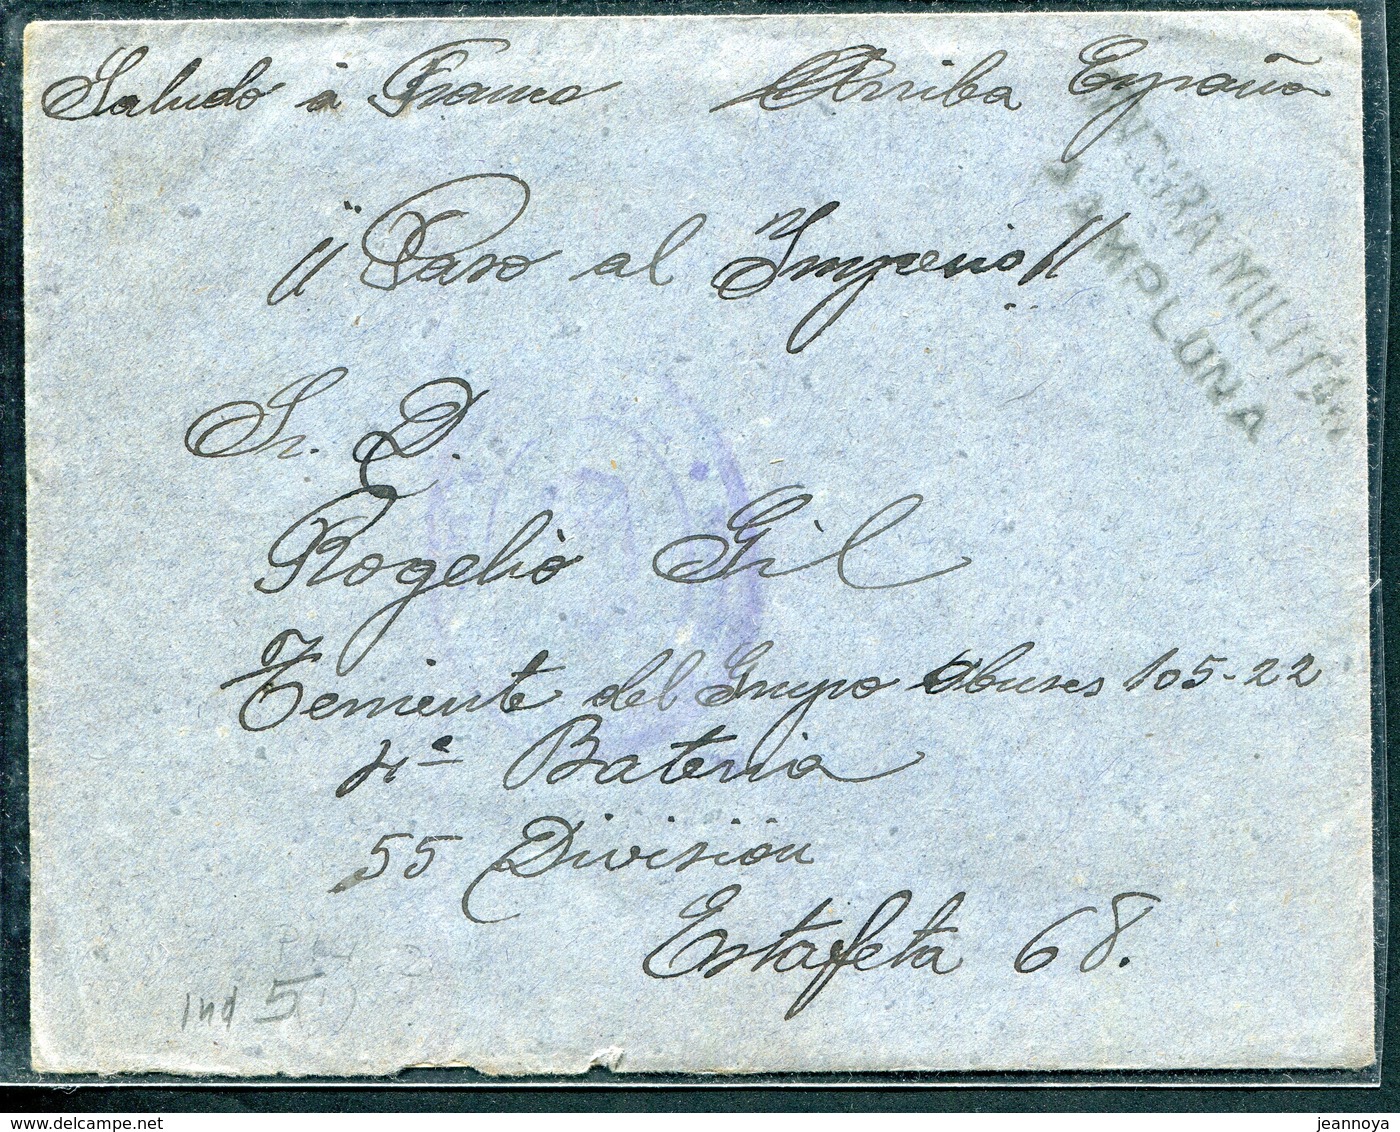 Saludo á Franco Arriba España
CENSURA MILITAR
PAMPLONA
"Paso al Imperio"
Sr. D.
Rogelio Gil
Teniente del Grupo Obuses 105-22
4ª Bateria
55 División
Estafeta 68.
Ind 5
jeannoya